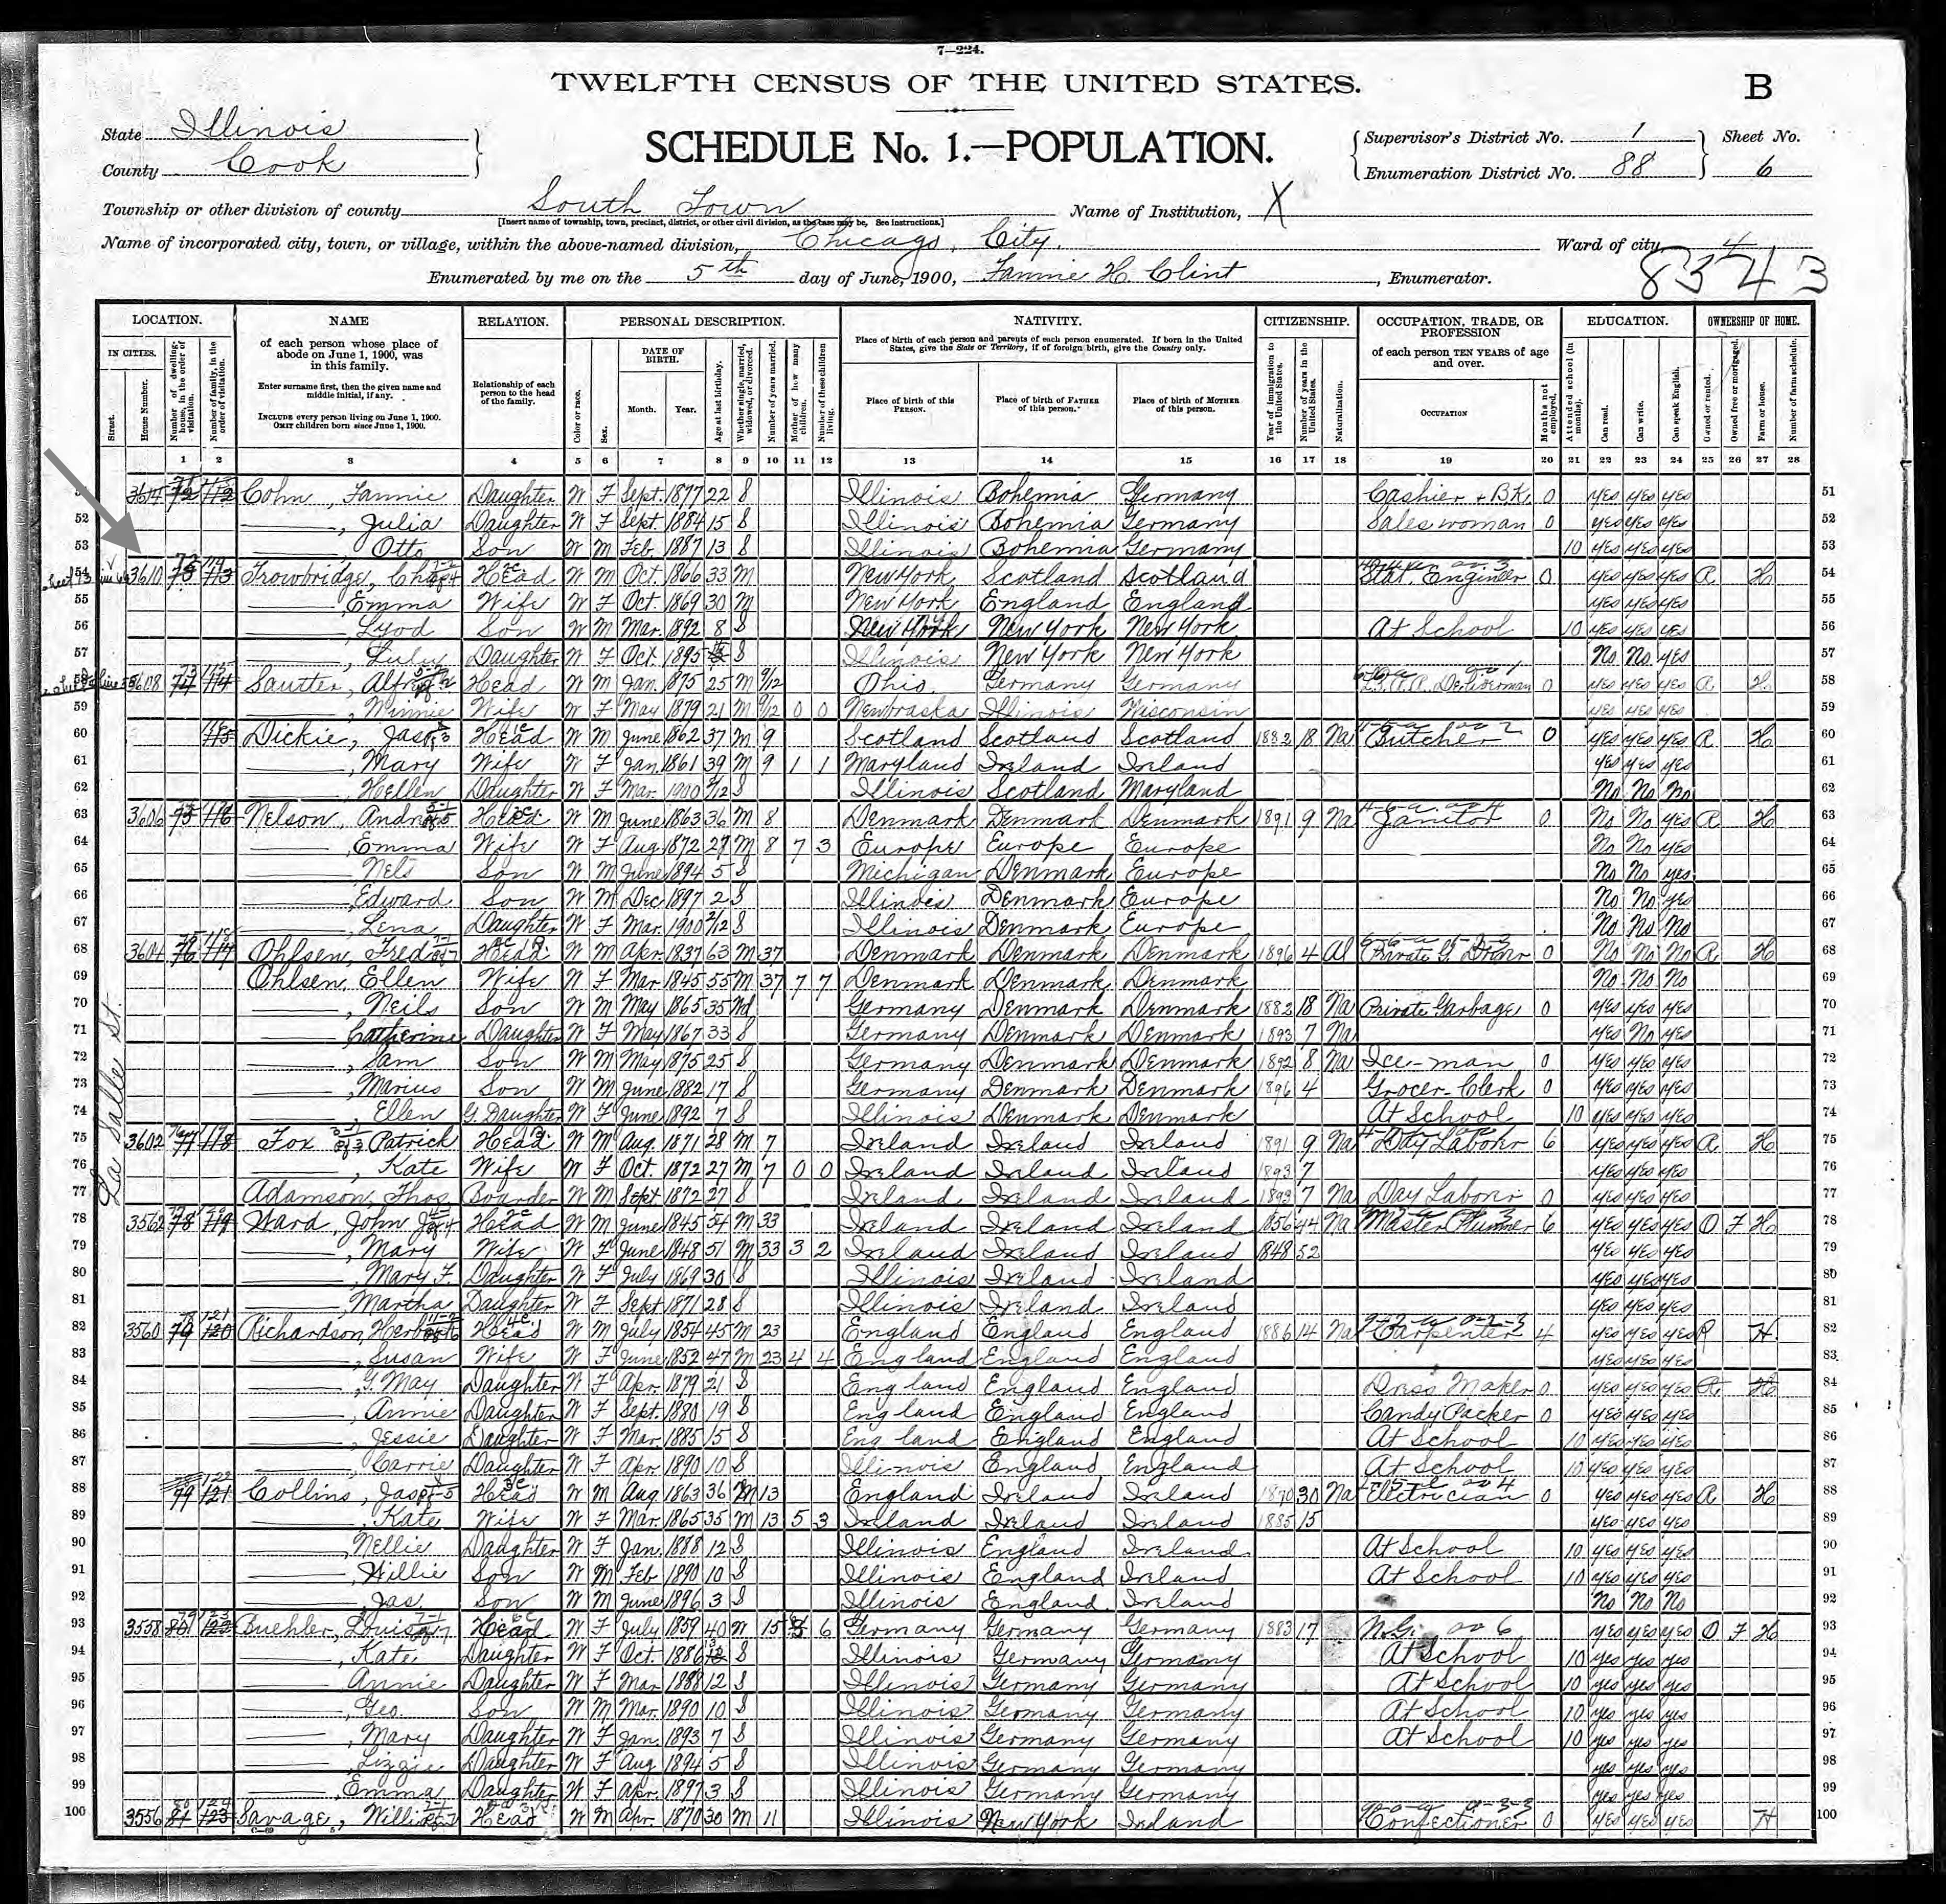 7—224.
TWELFTH CENSUS OF THE UNITED STATES.
B
State Illinois
County Cook
SCHEDULE No. 1.—POPULATION.
Supervisor's District No. 1 Sheet No.
Enumeration District No. 88 6
Township or other division of county South Town Name of Institution, X
[Insert name of township, town, precinct, district, or other civil division, as the case may be. See instructions.]
Name of incorporated city, town, or village, within the above-named division, Chicago City. Ward of city, 4
Enumerated by me on the 5th day of June, 1900, Fannie H. Clint, Enumerator.
8343
LOCATION. NAME RELATION. PERSONAL DESCRIPTION. NATIVITY. CITIZENSHIP. OCCUPATION, TRADE, OR PROFESSION EDUCATION. OWNERSHIP OF HOME.
IN CITIES. Street. House Number. Number of dwelling-house, in the order of visitation. Number of family, in the order of visitation.
of each person whose place of abode on June 1, 1900, was in this family.
Enter surname first, then the given name and middle initial, if any.
INCLUDE every person living on June 1, 1900. OMIT children born since June 1, 1900.
Relationship of each person to the head of the family.
Color or race. Sex. DATE OF BIRTH. Month. Year. Age at last birthday. Whether single, married, widowed, or divorced. Number of years married. Mother of how many children. Number of these children living.
Place of birth of each person and parents of each person enumerated. If born in the United States, give the State or Territory; if of foreign birth, give the Country only.
Place of birth of this PERSON. Place of birth of FATHER of this person. Place of birth of MOTHER of this person.
Year of immigration to the United States. Number of years in the United States. Naturalization.
of each person TEN YEARS of age and over.
OCCUPATION Months not employed.
Attended school (in months). Can read. Can write. Can speak English.
Owned or rented. Owned free or mortgaged. Farm or house. Number of farm schedule.
1 2 3 4 5 6 7 8 9 10 11 12 13 14 15 16 17 18 19 20 21 22 23 24 25 26 27 28
La Salle St.
3614 Cohn, Fannie Daughter W F Sept. 1877 22 S Illinois Bohemia Germany Cashier + BK. 0 yes yes yes 51
52 Julia Daughter W F Sept. 1884 15 S Illinois Bohemia Germany Saleswoman 0 yes yes yes 52
53 Otto Son W M Feb. 1887 13 S Illinois Bohemia Germany 10 yes yes yes 53
54 3610 Trowbridge, Chas Head W M Oct. 1866 33 M New York Scotland Scotland Stat. Engineer 0 yes yes yes R H 54
55 Emma Wife W F Oct. 1869 30 M New York England England yes yes yes 55
56 Lyod Son W M Mar. 1892 8 S New York New York New York At School 10 yes yes yes 56
57 Lulu Daughter W F Oct. 1895 S Illinois New York New York No No yes 57
3608 Sautter, Alfred Head W M Jan. 1875 25 M 9/12 Ohio Germany Germany 0 yes yes yes R H 58
59 Winnie Wife W F May 1879 21 M 9/12 0 0 Newbraska Illinois Wisconsin yes yes yes 59
60 115 Dickie, Jas Head W M June 1862 37 M 9 Scotland Scotland Scotland 1882 18 Na Butcher 0 yes yes yes R H 60
61 Mary Wife W F Jan. 1861 39 M 9 1 1 Maryland Ireland Ireland yes yes yes 61
62 Hellen Daughter W F Mar. 1900 2/12 S Illinois Scotland Maryland No No No 62
63 3606 Nelson, Andrew Head W M June 1863 36 M 8 Denmark Denmark Denmark 1891 9 Na Janitor 0 No No yes R H 63
64 Emma Wife W F Aug. 1872 27 M 8 7 3 Europe Europe Europe No No yes 64
65 Nels Son W M June 1894 5 S Michigan Denmark Europe No No yes 65
66 Edward Son W M Dec 1897 2 S Illinois Denmark Europe No No yes 66
67 Lena Daughter W F Mar. 1900 2/12 S Illinois Denmark Europe No No No 67
68 3604 Ohlsen, Fred Head W M Apr. 1837 63 M 37 Denmark Denmark Denmark 1896 4 Al Private 0 No No No R H 68
69 Ohlsen, Ellen Wife W F Mar. 1845 55 M 37 7 7 Denmark Denmark Denmark No No No 69
70 Neils Son W M May 1865 35 Wd Germany Denmark Denmark 1882 18 Na Private Garbage 0 yes yes yes 70
71 Catherine Daughter W F May 1867 33 S Germany Denmark Denmark 1893 7 Na yes No yes 71
72 Sam Son W M May 1875 25 S Germany Denmark Denmark 1892 8 Na Ice-man 0 yes yes yes 72
73 Marius Son W M June 1882 17 S Germany Denmark Denmark 1896 4 Grocer-Clerk 0 yes yes yes 73
74 Ellen G. Daughter W F June 1892 7 S Illinois Denmark Denmark At School 10 yes yes yes 74
75 3602 Fox Patrick Head W M Aug. 1871 28 M 7 Ireland Ireland Ireland 1891 9 Na Day Laborer 6 yes yes yes R H 75
76 Kate Wife W F Oct. 1872 27 M 7 0 0 Ireland Ireland Ireland 1893 7 yes yes yes 76
77 Adamson, Thos. Boarder W M Sept 1872 27 S Ireland Ireland Ireland 1893 7 Na Day Laborer 0 yes yes yes 77
78 3562 Ward, John J. Head W M June 1845 54 M 33 Ireland Ireland Ireland 1856 44 Na Master Plummer 6 yes yes yes O F H 78
79 Mary Wife W F June 1848 51 M 33 3 2 Ireland Ireland Ireland 1848 52 yes yes yes 79
80 Mary F. Daughter W F July 1869 30 S Illinois Ireland Ireland yes yes yes 80
81 Martha Daughter W F Sept 1871 28 S Illinois Ireland Ireland yes yes yes 81
82 3560 Richardson, Herbert Head W M July 1854 45 M 23 England England England 1886 14 Na Carpenter 4 yes yes yes R H 82
83 Susan Wife W F June 1852 47 M 23 4 4 England England England yes yes yes 83
84 G. May Daughter W F Apr. 1879 21 S England England England Dress Maker 0 yes yes yes R H 84
85 Annie Daughter W F Sept. 1880 19 S England England England Candy Packer 0 yes yes yes 85
86 Jessie Daughter W F Mar. 1885 15 S England England England At School 10 yes yes yes 86
87 Carrie Daughter W F Apr. 1890 10 S Illinois England England At School 10 yes yes yes 87
88 Collins, Jas Head W M Aug. 1863 36 M 13 England Ireland Ireland 1870 30 Na Electrician 0 yes yes yes R H 88
89 Kate Wife W F Mar. 1865 35 M 13 5 3 Ireland Ireland Ireland 1885 15 yes yes yes 89
90 Nellie Daughter W F Jan. 1888 12 S Illinois England Ireland At School 10 yes yes yes 90
91 Willie Son W M Feb 1890 10 S Illinois England Ireland At School 10 yes yes yes 91
92 Jas. Son W M June 1896 3 S Illinois England Ireland No No No 92
93 3558 Buehler, Louisa Head W F July 1859 40 W 15 6 Germany Germany Germany 1883 17 N.G. yes yes yes O F H 93
94 Kate Daughter W F Oct. 1886 13 S Illinois Germany Germany At School 10 yes yes yes 94
95 Annie Daughter W F Mar 1888 12 S Illinois Germany Germany At School 10 yes yes yes 95
96 Geo. Son W M Mar. 1890 10 S Illinois Germany Germany At School 10 yes yes yes 96
97 Mary Daughter W F Jan. 1893 7 S Illinois Germany Germany At School 10 yes yes yes 97
98 Lizzie Daughter W F Aug 1894 5 S Illinois Germany Germany yes yes yes 98
99 Emma Daughter W F Apr. 1897 3 S Illinois Germany Germany yes yes yes 99
100 3556 Savage, William Head W M Apr. 1870 30 M 11 Illinois New York Ireland Confectioner 0 yes yes yes H 100